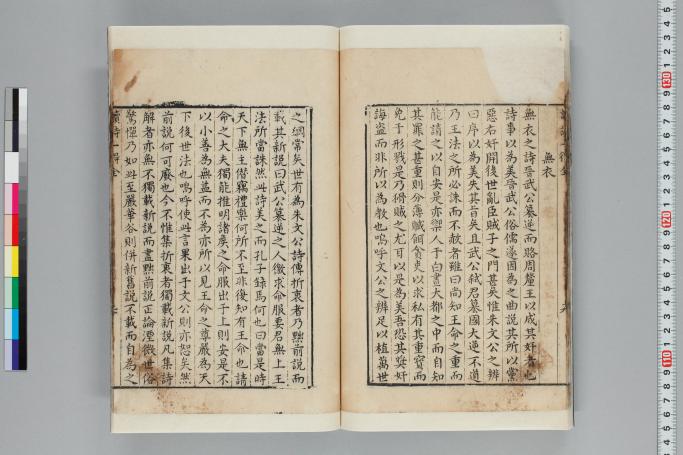 無衣
無衣之詩晉武公簒逆而賂周釐王以成其奸者也
詩事以為美晉武公俗儒遂因為之曲說其所以黨
惡右奸開後世亂臣賊子之門甚矣惟朱文公之辨
曰序以為美失其旨矣且武公弑君簒國大逆不道
乃王法之所必誅而不赦者雖曰尚知王命之重而
能請之以自安是亦禦人于白晝大都之中而自知
其罪之甚重則分薄贓餌貪吏以求私有其重寶而
免于刑戮是乃猾賊之尤耳以是為美吾恐其奬奸
誨盜而非所以為教也嗚呼文公之辨足以植萬世
之綱常矣世有為朱文公詩傳折衷者乃黜前說而
載其新說曰武公簒逆之人徼求命服要君無上王
法所當誅然此詩美之而孔子録焉何也曰當是時
天下無主僣竊禮樂何所不至非復知有王命也請
命之大夫獨能推明諸矦之命服出于上則安是不
以小善為無益而不為亦所以見王命之尊嚴為天
下後世法也嗚呼使此言果出于文公則亦恕矣然
前說何可廢也今不惟集折衷者獨載新說凡集詩
解者亦無不獨載新說而盡黜前說正論湮微世俗
驚憚乃如此至嚴華谷則併新舊說不載而自為之